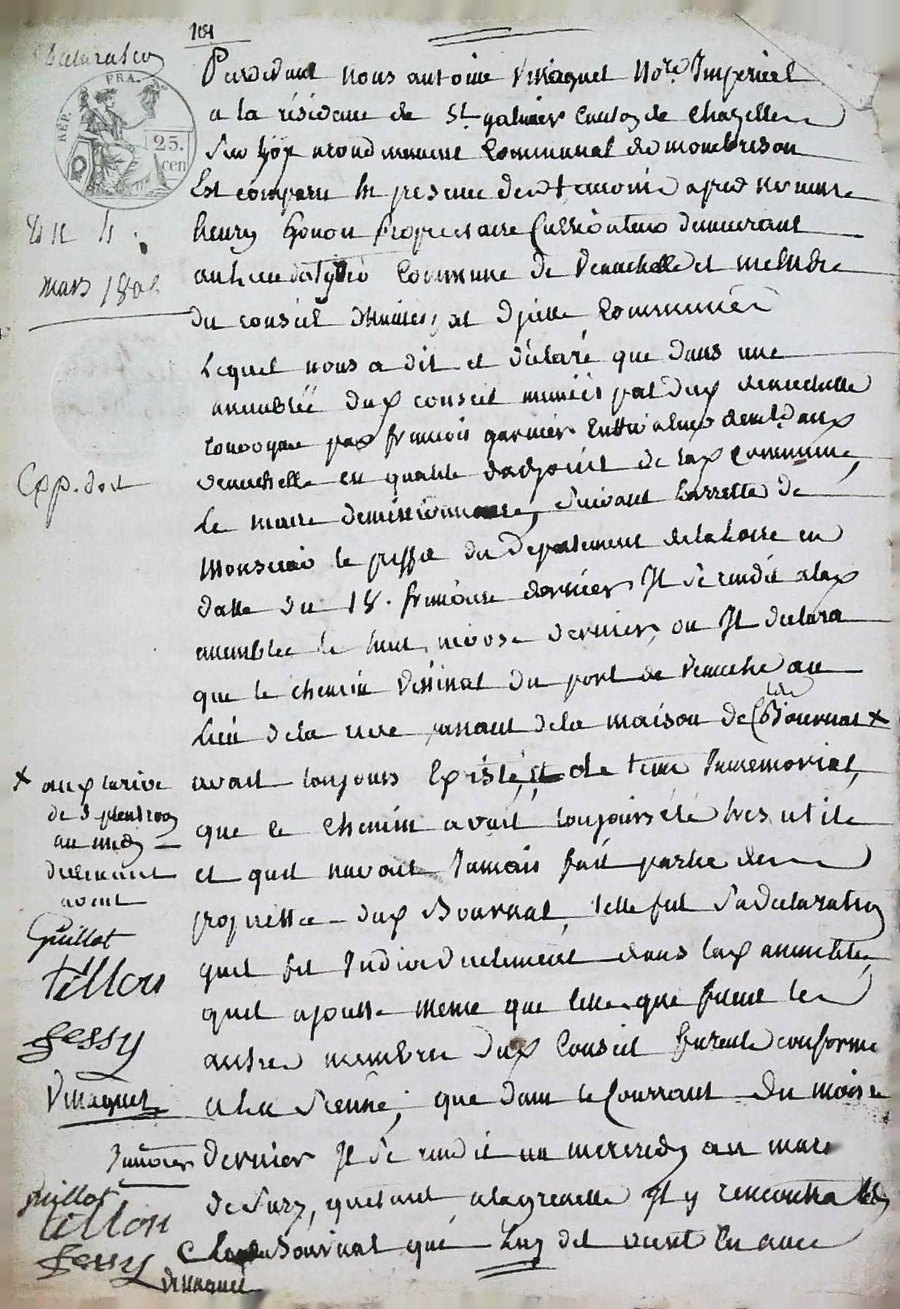 101
REP. FRA.
25.
cen
mars 180
Exp. doit
Pardevant nous antoine Vinaquet No.re Imperial
a la résidence de St galmier Canton de Chazelle
Sur Lyon arondissement Communal de montbrison
Est comparu En presence des temoins apres nommés
henry proprietaire Cultivateur demeurant
au lieu Commune de Veauchette et membre
du conseil municipal de ditte Commune
Lequel nous a dit et déclaré que dans une
assemblée dud conseil municipal dud Veauchette
convoquée par francois garnier Cultivateur demt. aud
veauchette en qualité dadjoint de lad Commune,
Le maire demissionnaire, suivant Larrette de
Monsieur le preffet du Departement de la Loire en
datte du 18. frimaire dernier Il se rendit a lad
assemblée le huit nivose dernier, ou Il declara
que le chemin Vissinal du port de Veauche au
Lieu de la rive, de la maison de Bournat +
avait toujours Existé, de tems Immemorial,
que ce chemin avait toujours été tres utile
et quil navait Jamais fait partie des
proprietté dud Bournat, telle fut Sa declaration
quil fit Individuelement dans lad assemblée,
quil ajoutte meme que celles que firent les
autres membres dud Conseil furent conforme
a La Sienne, que dans le Courrant du mois de
Janvier dernier Il se rendit un mercredy au marc
de Sury, quetant a la grenette Il y rencontra led
Bournat qui Luy dit vient En avec
+ au
de
au midy
avant
Guillot
tillon
Gessy
Vinaquet
Guillot
tillon
Gessy
Vinaquet